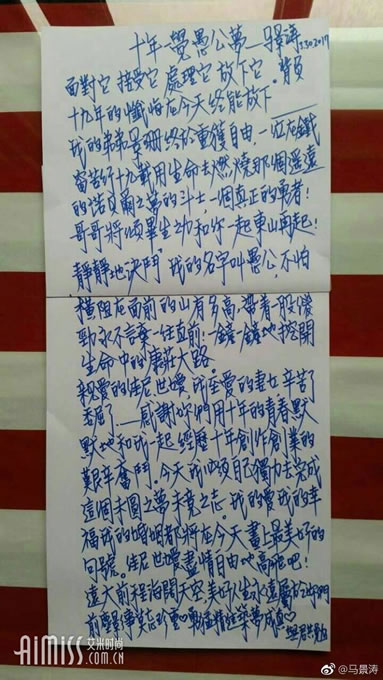 十年一覺愚公夢——馬景濤 2017
面對它 接受它 處理它 放下它。背負
十九年的懺悔在今天終能放下
我的弟弟景珊終於重獲自由，一位在鐵
窗苦行十九載用生命去燃燒那個遙遠
的諾貝爾之夢的鬥士，一個真正的勇者！
哥哥將傾畢生之力和你一起東山再起！
靜靜地決鬥 我的名字叫愚公 不怕
橫阻在面前的山有多高 帶著一股傻
勁永不言棄一往直前！一鏟一鏟地挖開
生命中的康莊大路。
親愛的佳尼 世嬡，我至愛的妻女辛苦了
委屈了……感謝你們用十年的青春默
默地和我一起經歷十年創作創業的
艱辛奮鬥。今天我必須自己獨力去完成
這個未圓之夢未竟之志。我的愛我的幸
福我的婚姻都將在今天畫上最美好的
句號。佳尼世嬡盡情自由地高飛吧！
遠大前程海闊天空美好人生永遠屬於你們
AiMiss 艾米时尚
AIMISS.COM.CN
@马景涛